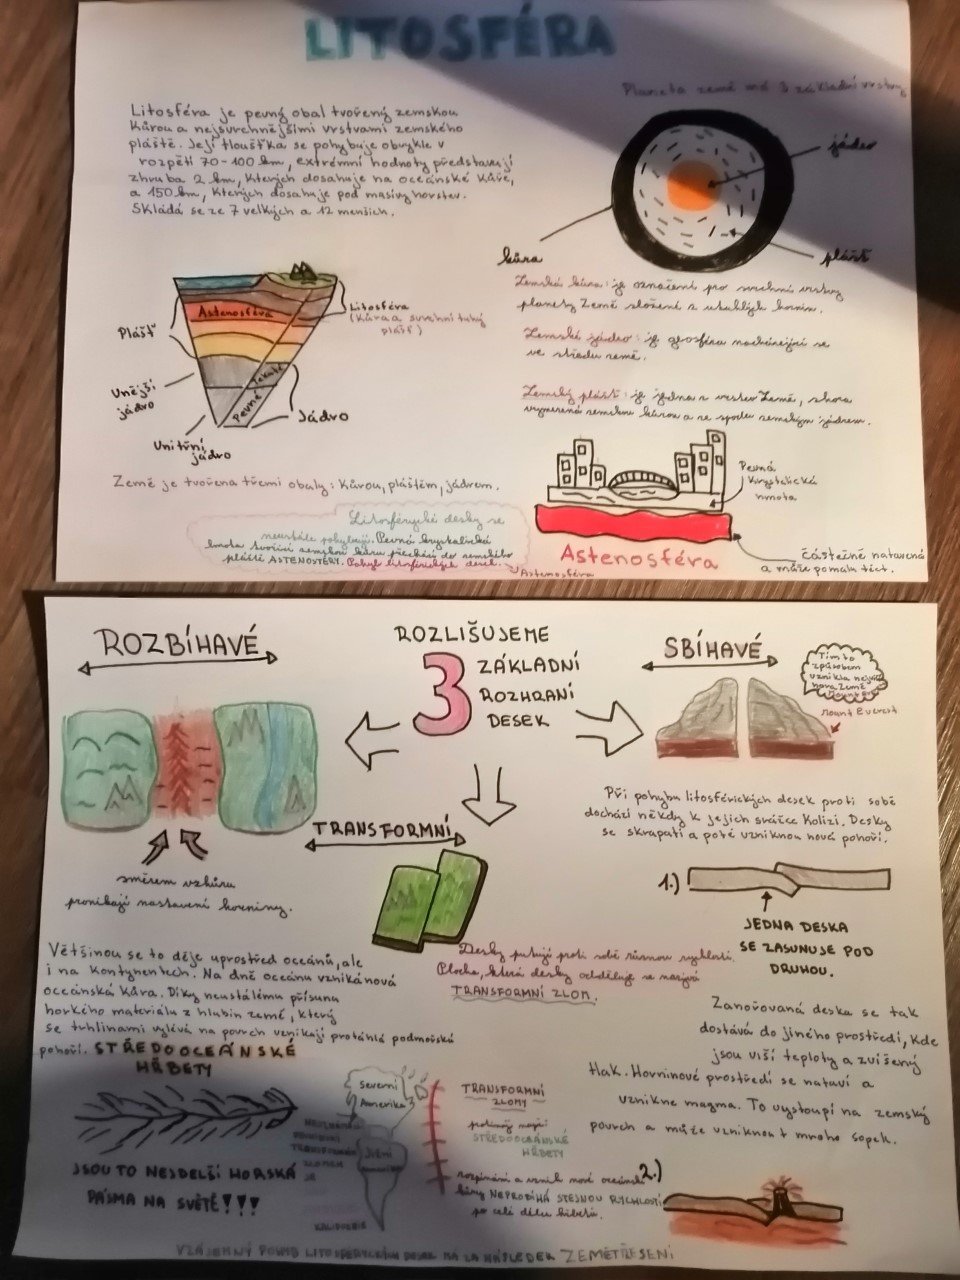 LITOSFÉRA
Planeta země má 3 základní vrstvy
Litosféra je pevný obal tvořený zemskou
kůrou a nejsvrchnějšími vrstvami zemského
pláště. Její tloušťka se pohybuje obvykle v
rozpětí 70-100 km, extrémní hodnoty představují
zhruba 2 km, kterých dosahuje na oceánské kůře,
a 150 km, kterých dosahuje pod masivy horstev.
Skládá se ze 7 velkých a 12 menších.
jádro
kůra
plášť
Astenosféra
Litosféra
(kůra a svrchní tuhý
plášť)
Plášť
Vnější
jádro
Vnitřní
jádro
Tekuté
Pevné
Jádro
Zemská kůra: je označení pro svrchní vrstvy
planety Země složené z utuhlých hornin.
Zemské jádro: je geosféra nacházející se
ve středu země.
Zemský plášť: je jedna z vrstev Země, shora
vymezená zemskou kůrou a ze spodu zemským jádrem.
Země je tvořena třemi obaly: kůrou, pláštěm, jádrem.
Litosférické desky se
neustále pohybují. Pevná krystalická
hmota tvořící zemskou kůru přechází do zemského
pláště ASTENOSFÉRY. Pohyb litosférických desek.
Astenosféra
Pevná
krystalická
hmota
Astenosféra
částečně natavená
a může pomalu téct.
ROZBÍHAVÉ
ROZLIŠUJEME
3 ZÁKLADNÍ
ROZHRANÍ
DESEK
SBÍHAVÉ
Tímto
způsobem
vznikla nejvyšší
hora Země
Mount Everest
TRANSFORMNÍ
směrem vzhůru
pronikají nastavení horniny.
Při pohybu litosférických desek proti sobě
dochází někdy k jejich srážce kolizi. Desky
se skrapatí a poté vzniknou nová pohoří.
1.)
JEDNA DESKA
SE ZASUNUJE POD
DRUHOU.
Většinou se to děje uprostřed oceánů, ale
i na kontynentech. Na dně oceánu vzniká nová
oceánská kůra. Díky neustálému přísunu
horkého materiálu z hlubin země, který
se trhlinami vylévá na povrch vznikají protáhlá podmořská
pohoří. STŘEDOOCEÁNSKÉ
HŘBETY
Desky putují proti sobě různou rychlostí.
Plocha, která desky odděluje se nazývá
TRANSFORMNÍ ZLOM.
Zanořovaná deska se tak
dostává do jiného prostředí, kde
jsou viší teploty a zvíšený
tlak. Horninové prostředí se nataví a
vznikne magma. To vystoupí na zemský
povrch a může vzniknout mnoho sopek.
JSOU TO NEJDELŠÍ HORSKÁ
PÁSMA NA SVĚTĚ!!!
Severní
Amerika
Jižní
Amerika
KALIFORNIE
TRANSFORMNÍ
ZLOMY
protínají napříč
STŘEDOOCEÁNSKÉ
HŘBETY
rozpínání a vznik nové oceánské
kůry NEPROBÍHÁ STEJNOU RYCHLOSTÍ
po celé délce hřbetů.
2.)
VZÁJEMNÝ POHYB LITOSFERYCKÝCH DESEK MÁ ZA NÁSLEDEK ZEMĚTŘESENÍ